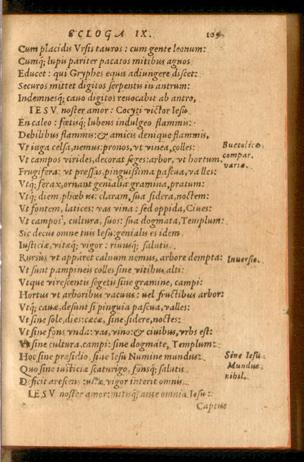 ECLOGA IX.
Cum placidis Vrsis tauros: cum gente leonum:
Cumq; lupis pariter pacatos mitibus agnos
Educet: qui Gryphes equis adiungere discet:
Securos mittet digitos serpentis in antrum:
Indemnesq; cauo digitos reuocabit ab antro,
IESV noster amor: Cocyti victor Iesu.
En caleo: fœtiuq; lubens indulgeo flammis:
Debilibus flammis: & amicis denique flammis,
Vt iuga celsa, nemus: pronos, vt vinea, colles:
Bucolicæ compar. variæ.
Vt campos virides, decorat seges: arbor, vt hortum,
Frugifera: vt pressas, pinguissima pascua, valles:
Vtq; feras, ornant genialia gramina, pratum:
Vtq; diem phœbus: claram, sua sidera, noctem:
Vt fontem, latices: vas vina: sed oppida, Ciues:
Vt campos, cultura, suos: sua dogmata, Templum:
Sic decus omne tuis Iesu: genialis es idem
Iusticiæ, vitæq; vigor: riuusq; salutis.
Rursus vt apparet caluum nemus, arbore dempta:
Inuersio.
Vt sunt pampineis colles sine vitibus alti:
Vtque virescentis segetis sine gramine, campi:
Hortus vt arboribus vacuus: vel fructibus arbor:
Vtq; cauæ, desunt si pinguia pascua, valles:
Vt sine sole, dies: cæca, sine sidere, noctes:
Vt sine fons vnda: vas, vino: & ciuibus, vrbs est:
Vt sine cultura, campi: sine dogmate, Templum:
Hoc sine præsidio, sine Iesu Numine mundus:
Sine Iesu Mundus nihil.
Quo sine iusticiæ scaturigo, fonsq; salutis
Deficit arescens: vitæ vigor interit omnis.
IESV noster amor: mitusq; ante omnia Iesu:
Captus